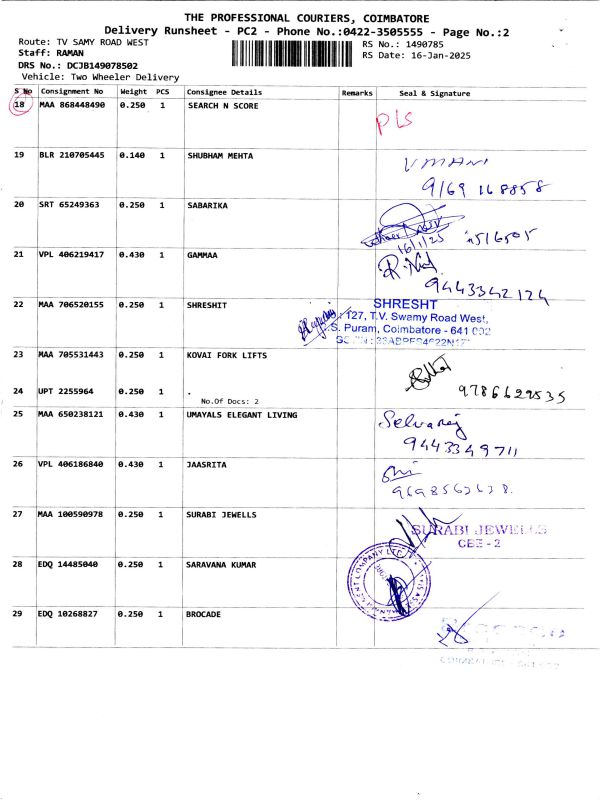 THE PROFESSIONAL COURIERS, COIMBATORE
Delivery Runsheet - PC2 - Phone No.:0422-3505555 - Page No.:2
Route: TV SAMY ROAD WEST
RS No.: 1490785
Staff: RAMAN
RS Date: 16-Jan-2025
DRS No.: DCJB149078502
Vehicle: Two Wheeler Delivery
S No Consignment No Weight PCS Consignee Details Remarks Seal & Signature
18 MAA 868448490 0.250 1 SEARCH N SCORE
PLS
19 BLR 210705445 0.140 1 SHUBHAM MEHTA
UMANI
9169 168858
20 SRT 65249363 0.250 1 SABARIKA
16/1/25
21 VPL 406219417 0.430 1 GAMMAA
9443342124
22 MAA 706520155 0.250 1 SHRESHIT
SHRESHT
127, T.V. Swamy Road West,
S. Puram, Coimbatore - 641 002
23 MAA 705531443 0.250 1 KOVAI FORK LIFTS
24 UPT 2255964 0.250 1 .
9786629535
No.Of Docs: 2
25 MAA 650238121 0.430 1 UMAYALS ELEGANT LIVING
Selvaraj
9443349711
26 VPL 406186840 0.430 1 JAASRITA
27 MAA 100590978 0.250 1 SURABI JEWELLS
SURABI JEWELLS
CBE - 2
28 EDQ 14485040 0.250 1 SARAVANA KUMAR
29 EDQ 10268827 0.250 1 BROCADE